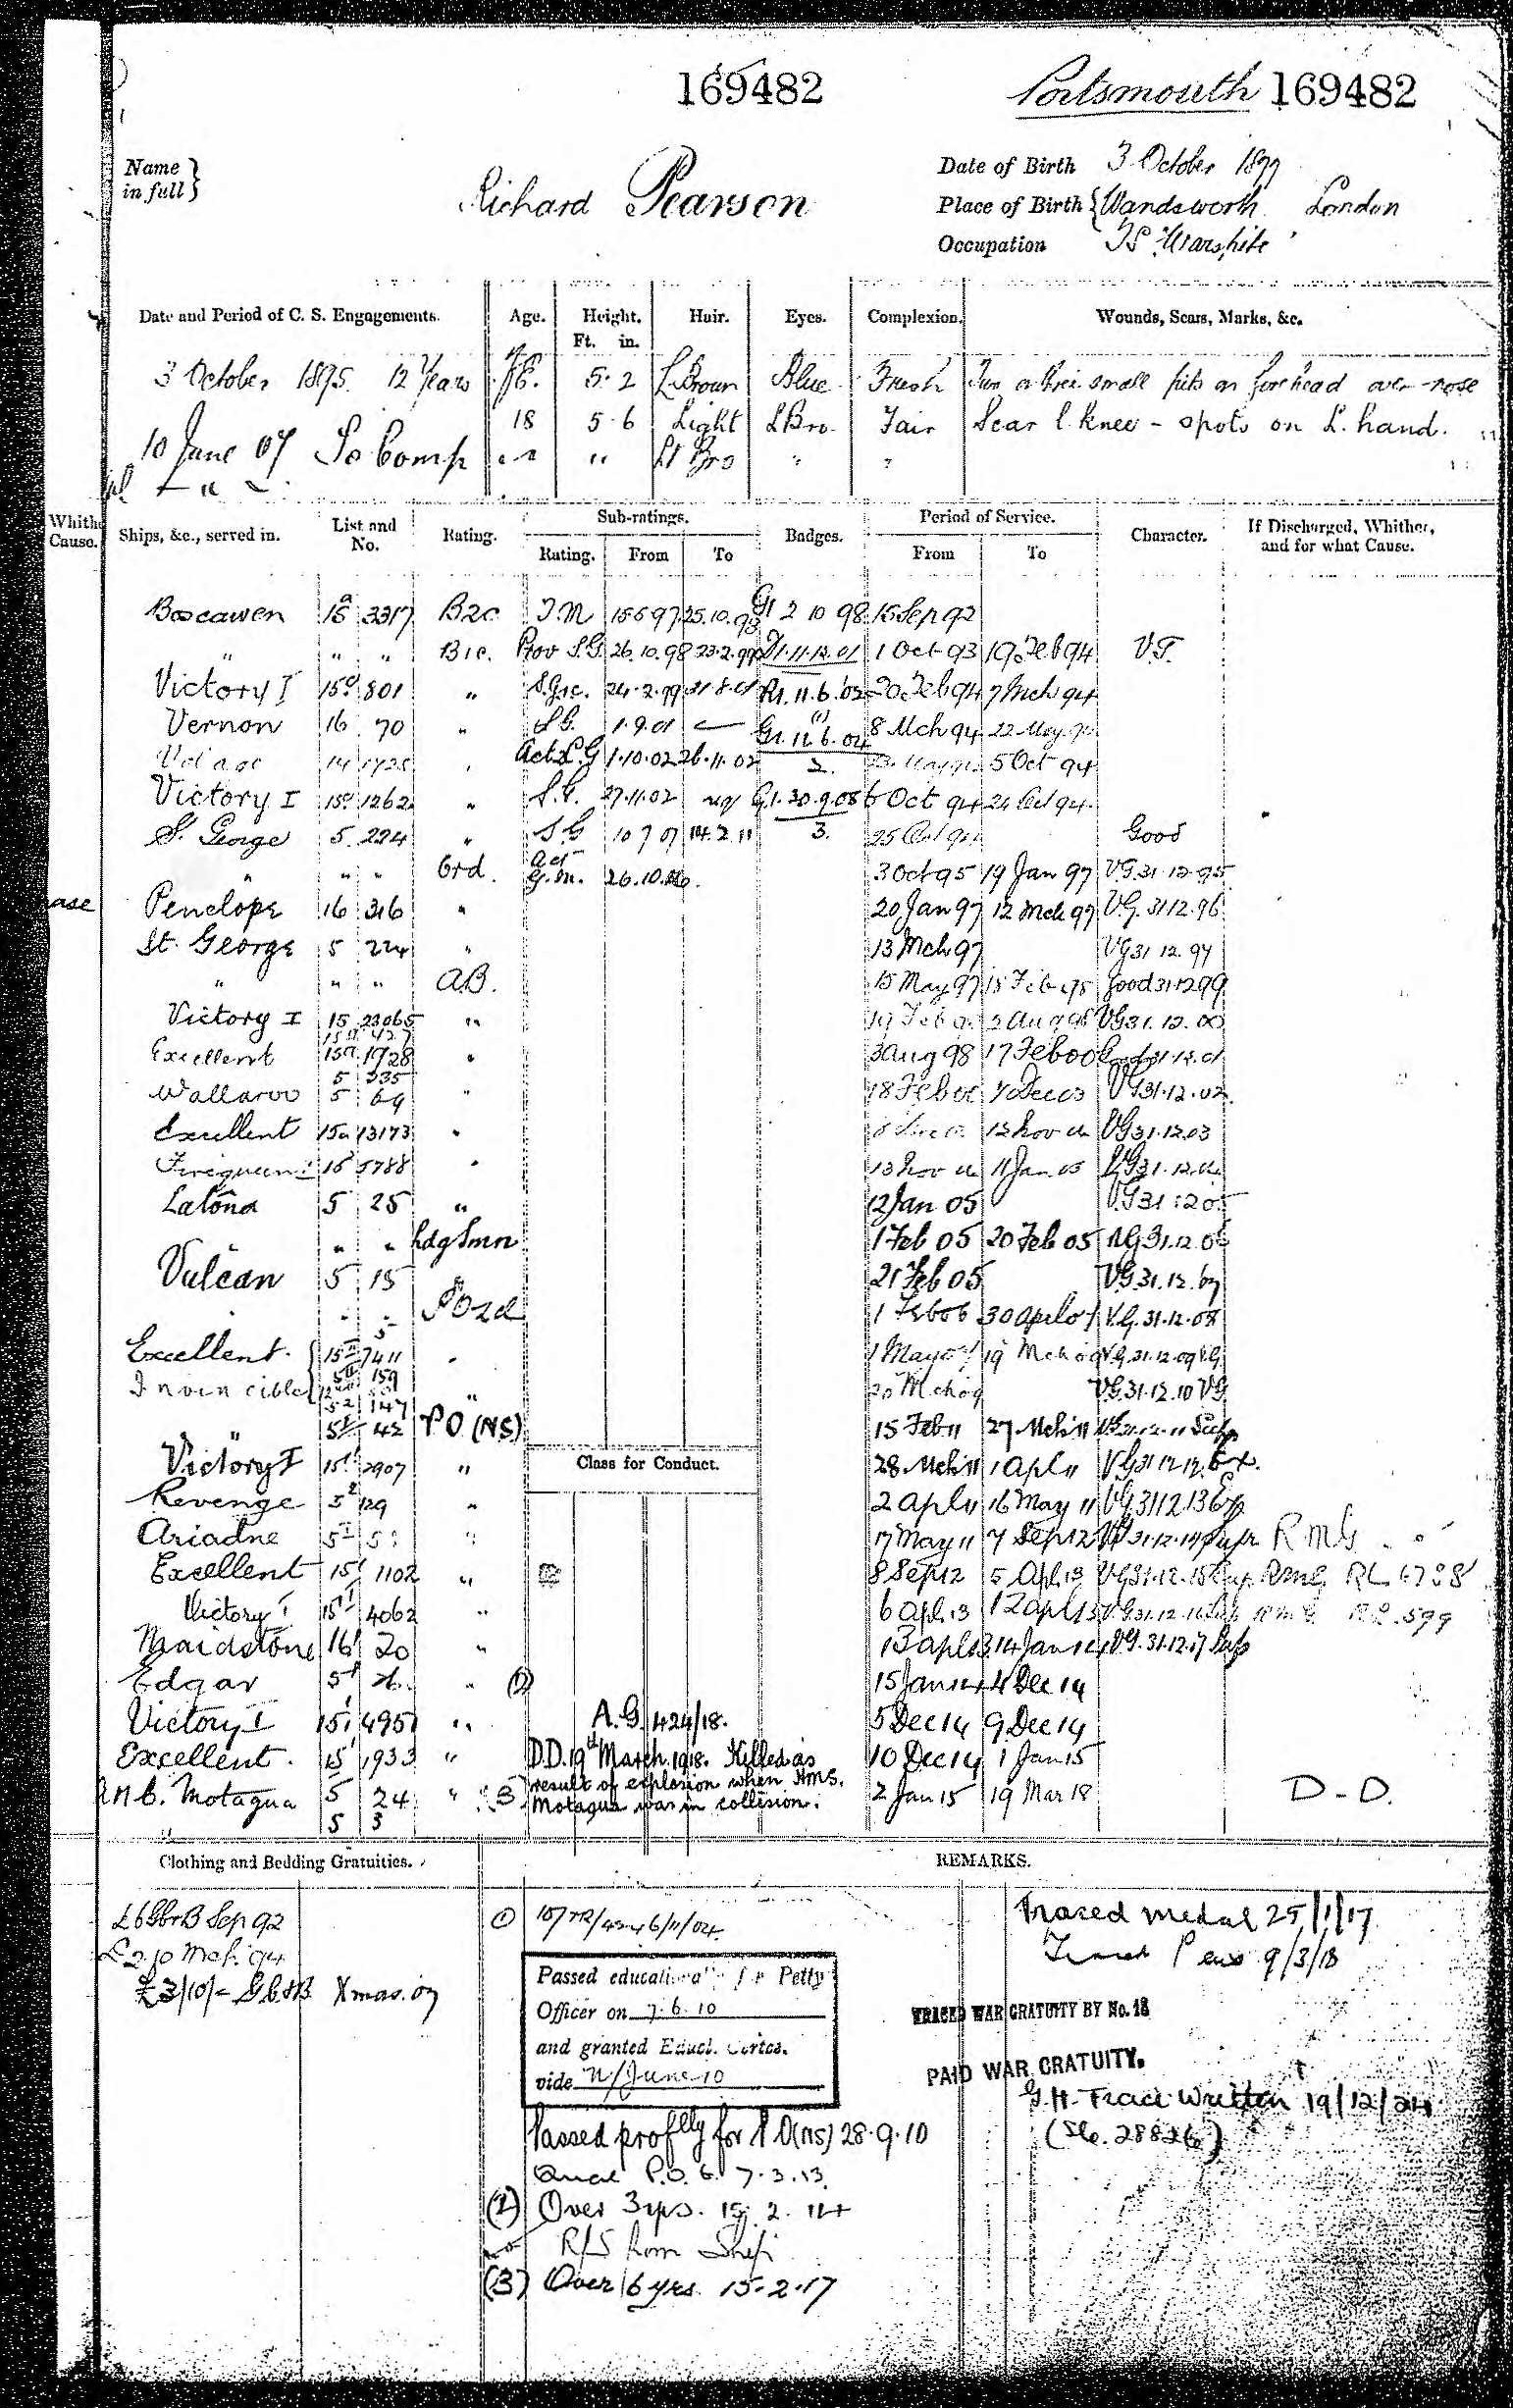 169482
Portsmouth 169482
Name in full } Richard Pearson
Date of Birth 3 October 1877
Place of Birth { Wandsworth London
Occupation TS "Warspite"
Date and Period of C. S. Engagements. Age. Height. Ft. in. Hair. Eyes. Complexion. Wounds, Scars, Marks, &c.
3 October 1895. 12 Years 5. 2 L. Brown Blue Fresh Two or three small pits on forehead over nose
18 5. 6 Light L Bro. Fair Scar l. knee - spots on L. hand.
10 June 07 To Comp " " Lt Bro " "
Whith Cause. Ships, &c., served in. List and No. Rating. Sub-ratings. Rating. From To Badges. Period of Service. From To Character. If Discharged, Whither, and for what Cause.
Boscawen 15a 3317 B2c T.M 15.5.97 25.10.98 G1 2 10 98 15 Sep 92
" " " B1c. Prov S.G. 26.10.98 23.2.99 D1.11.12.01 1 Oct 93 19 Feb 94 V.G.
Victory I 15a 801 " S.G.1c. 24.2.99 31.8.01 R1.11.6.02 20 Feb 94 7 Mch 94
Vernon 16 70 " S.G. 1.9.01 — G1.11.6.04 8 Mch 94 22 May 94
14 Act S.G 1.10.02 26.11.02 2. 5 Oct 94
Victory I 15a 1262 " S.G. 27.11.02 G.1.30.9.08 6 Oct 94 24 Oct 94
St. George 5 224 " S.G 10 7 07 14.2.11 3. 25 Oct 94 Good
" " " Ord. Act G.M. 26.10.06. 3 Oct 95 19 Jan 97 V.G. 31.12.95
ase Penelope 16 316 " 20 Jan 97 12 Mch 97 V.G. 31 12.96
St. George 5 224 " 13 Mch 97 VG 31 12.97
" " " A.B. 15 May 97 18 Feb 98 Good 31.12 99
Victory I 15 23065 " 19 Feb 98 2 Aug 98 VG 31.12.00
15a 427
Excellent 15a 1928 " 3 Aug 98 17 Feb 00 Good 31.12.01
5 335
Wallaroo 5 64 " 18 Feb 00 7 Dec 03 VG 31.12.02
Excellent 15a 13173 " 8 Dec 03 12 Nov 04 VG 31.12.03
Firequeen I 15 5788 " 13 Nov 04 11 Jan 05 VG 31.12.04
Latona 5 25 " 12 Jan 05 V.G 31 12 05
" " " Ldg Smn 1 Feb 05 20 Feb 05 V.G 31.12.06
Vulcan 5 15 21 Feb 05 V.G. 31.12.07
" " PO2cl 1 Feb 06 30 April 07 V.G. 31.12.08
Excellent 15 II 7411 " 1 May 07 19 Mch 09 V.G. 31.12.09 V.G.
5 II 159
Invincible " 20 Mch 09 VG. 31.12.10 VG
5 2 147
" 5 I 42 PO (NS) 15 Feb 11 27 Mch 11 VG 31.12.11 Supr
Victory I 15 I 2907 " 28 Mch 11 1 Apl 11 VG 31 12 12. Ex.
Class for Conduct.
Revenge 5 2 129 " 2 Apl 11 16 May 11 VG. 31 12.13 Ex
Ariadne 5 I " 17 May 11 7 Sep 12 VG 31.12.14 Supr RMG
Excellent 15 I 1102 " 8 Sep 12 5 Apl. 13 VG 31.12.15 Sup. RMG RL 6788
Victory I 15 I 4062 " 6 Apl. 13 12 Apl 13 V.G. 31.12.16 Sup RMG RL. 599
Maidstone 16 I 20 " 13 Apl 13 14 Jan 14 V.G. 31.12.17 Sup
Edgar 5 I 26. " (2) 15 Jan 14 4 Dec 14
Victory I 15 I 4951 " A.G. 1424/18. 5 Dec 14 9 Dec 14
Excellent. 15 I 1933 " D.D. 19th March. 1918. Killed as 10 Dec 14 1 Jan 15
Motagua 5 24 " 3 result of explosion when HMS. 2 Jan 15 19 Mar 18 D-D.
" 5 3 Motagua was in collision.
Clothing and Bedding Gratuities. REMARKS.
£6 Sep 92
£2 10 Mch. 94
£3/10/- Xmas. 07
(1)
Passed educationally for Petty
Officer on 7.6.10
and granted Educl. Certes.
vide N/June 10
Passed proflly for P O (NS) 28.9.10
Qual P.O. 7.3.13.
(2) Over 3 yrs. 15. 2. 14
R/S from Ship
(3) Over 6 yrs. 15.2.17
Traced medal 25/1/17
Traced Pens 9/3/18
TRACED WAR GRATUITY BY No. 18
PAID WAR GRATUITY.
G.H. Trace Written 19/12/24